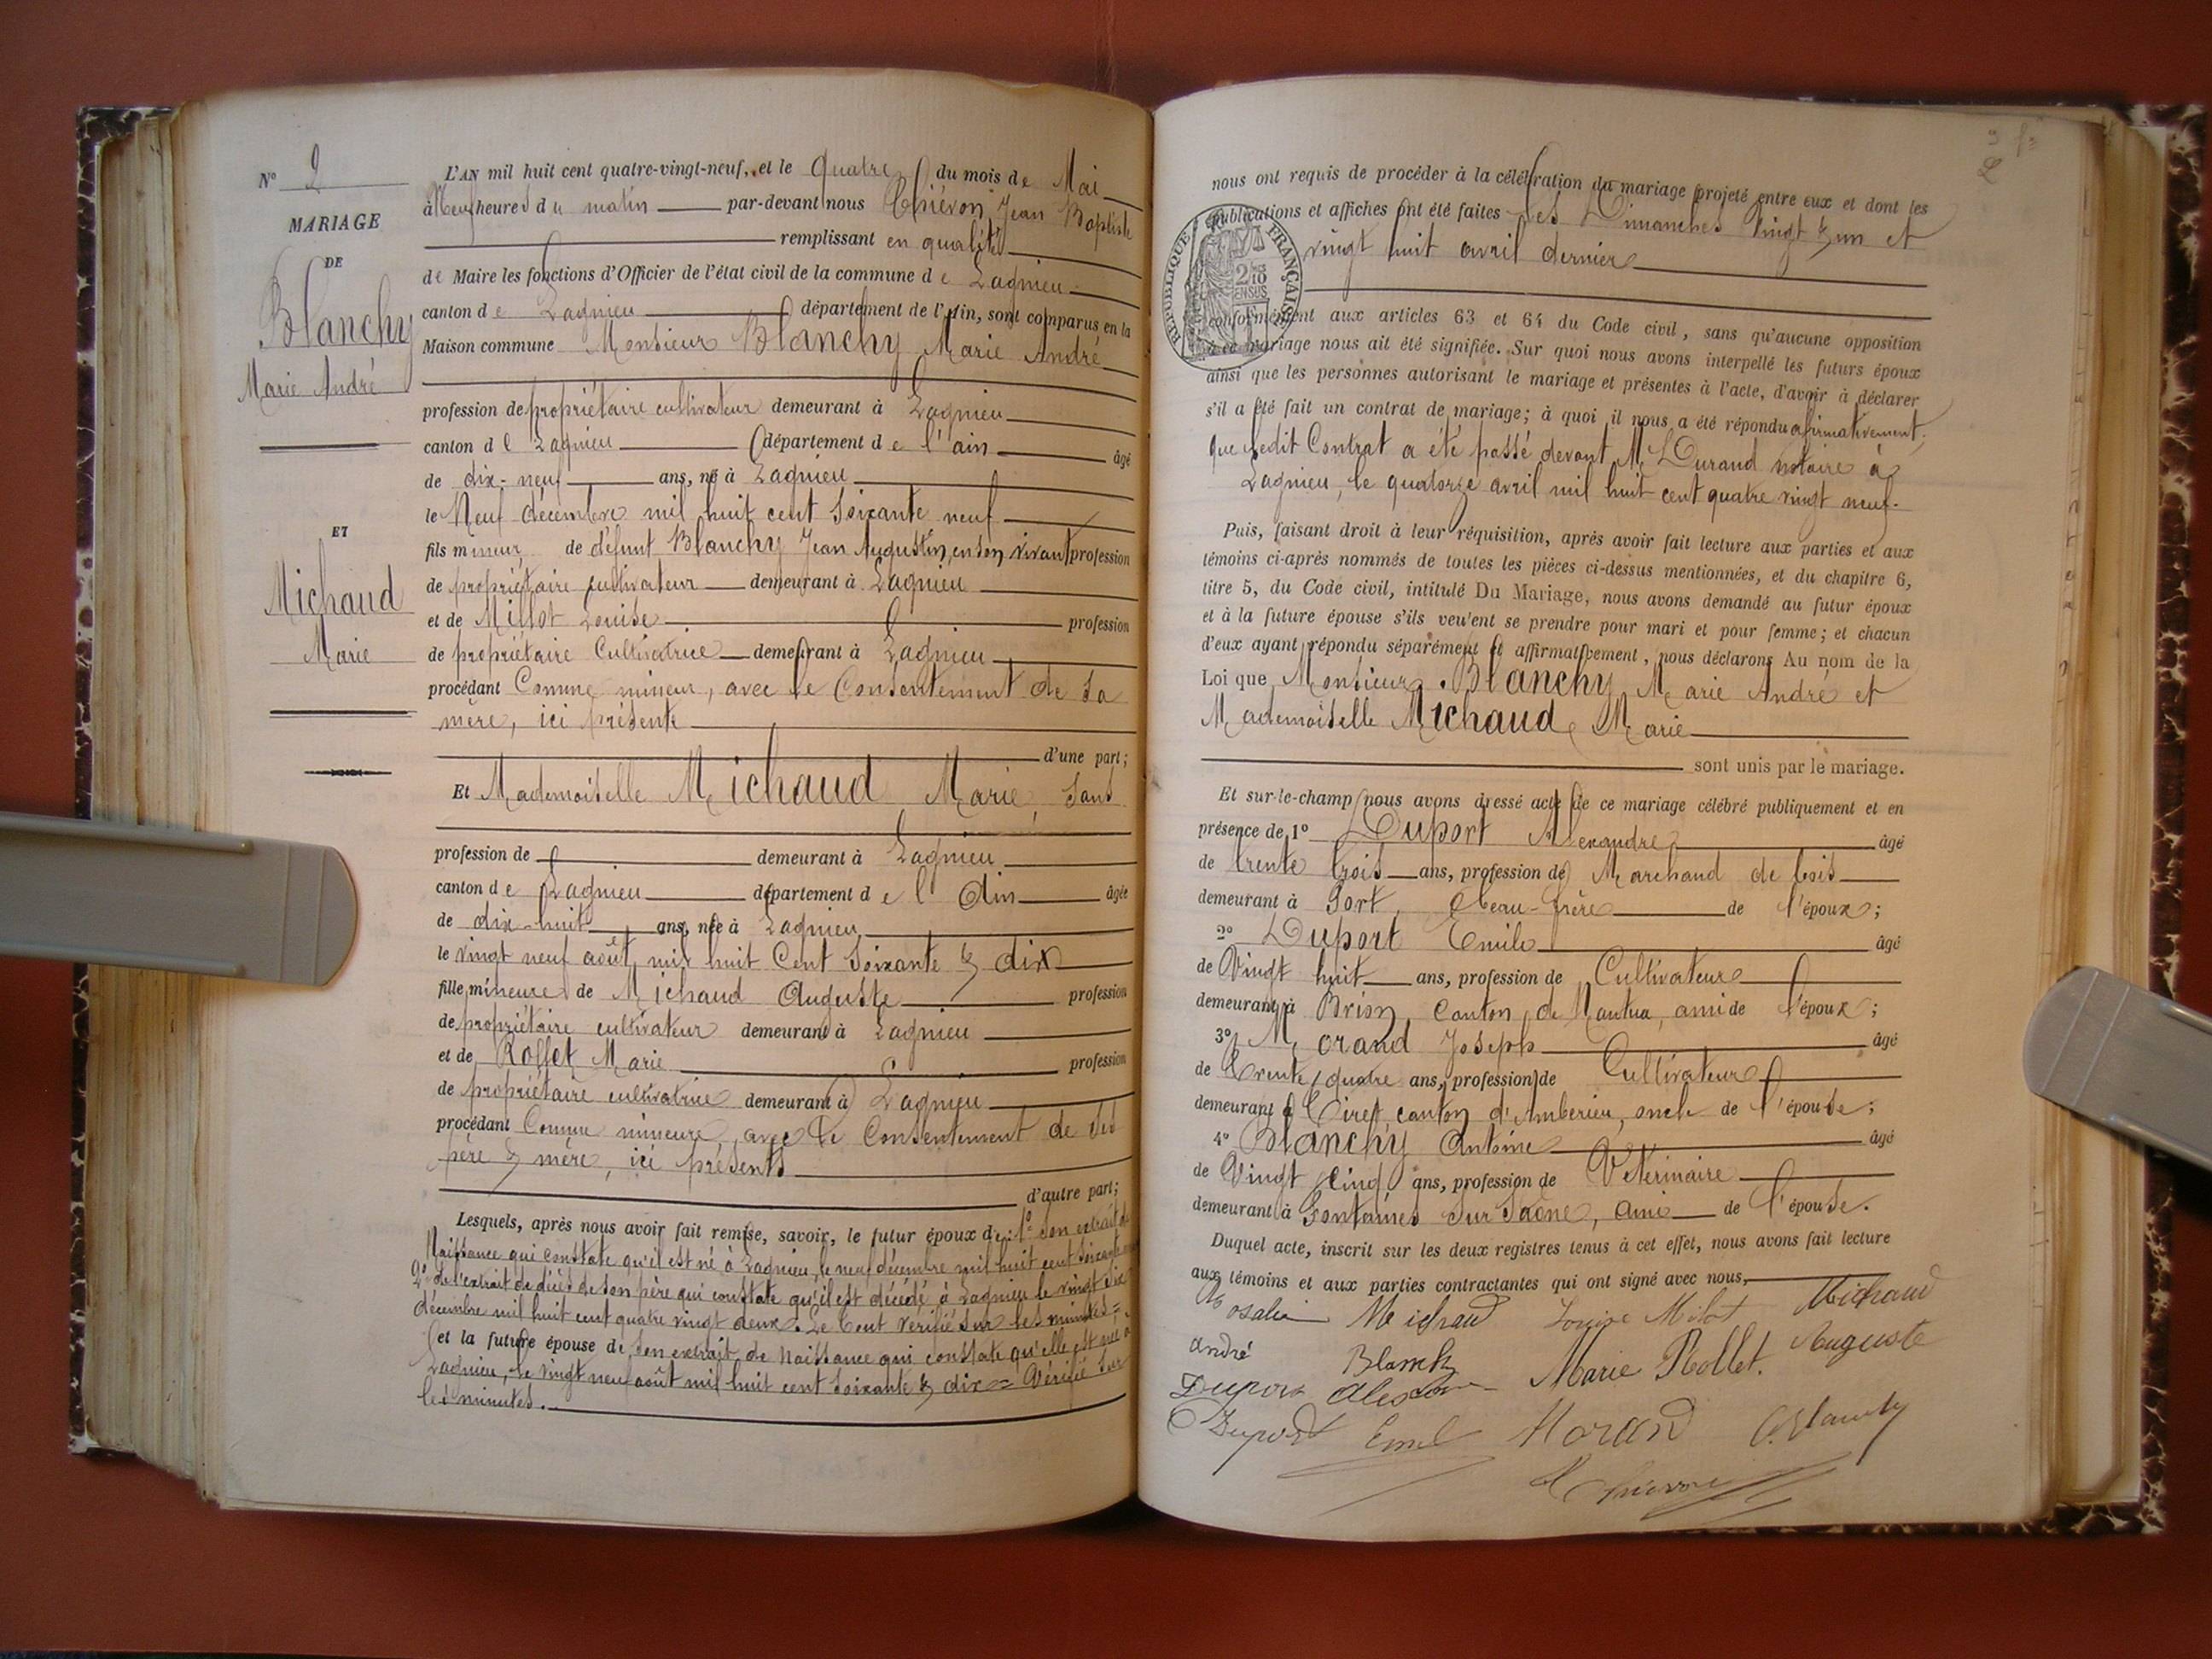 N° 2
MARIAGE
DE
Blanchy
Marie André
ET
Michaud
Marie
L'AN mil huit cent quatre-vingt-neuf, et le quatre du mois de Mai
à Neuf heures du matin par-devant nous Thiévon Jean Baptiste
remplissant en qualité
de Maire les fonctions d'Officier de l'état civil de la commune de Lagnieu
canton de Lagnieu département de l'Ain, sont comparus en la
Maison commune Monsieur Blanchy Marie André
profession de propriétaire cultivateur demeurant à Lagnieu
canton de Lagnieu département de l'ain âgé
de dix-neuf ans, né à Lagnieu
le Neuf décembre mil huit cent soixante neuf
fils mineur de défunt Blanchy Jean Augustin, en son vivant profession
de propriétaire cultivateur demeurant à Lagnieu
et de Millot Louise profession
de propriétaire Cultivatrice demeurant à Lagnieu
procédant Comme mineur, avec le Consentement de sa
mère, ici présente
d'une part;
Et Mademoiselle Michaud Marie, sans
profession de demeurant à Lagnieu
canton de Lagnieu département de l'Ain âgée
de dix-huit ans, née à Lagnieu
le vingt neuf août mil huit Cent soixante & dix
fille mineure de Michaud Auguste profession
de propriétaire cultivateur demeurant à Lagnieu
et de Rollet Marie profession
de propriétaire cultivatrice demeurant à Lagnieu
procédant Comme mineure, avec le Consentement de ses
père & mère, ici présents
d'autre part;
Lesquels, après nous avoir fait remise, savoir, le futur époux de: 1° son extrait de
Naissance qui constate qu'il est né à Lagnieu, le neuf décembre mil huit cent soixante
2° de l'extrait de décès de son père qui constate qu'il est décédé à Lagnieu le vingt six
décembre mil huit cent quatre vingt deux. Le tout vérifié sur les minutes =
et la future épouse de son extrait de naissance qui constate qu'elle est née à
Lagnieu, le vingt neuf août mil huit cent soixante & dix = Vérifié sur
les minutes.
2
nous ont requis de procéder à la célébration du mariage projeté entre eux et dont les
publications et affiches ont été faites les Dimanches vingt & un et
vingt huit avril dernier
RÉPUBLIQUE FRANÇAISE
conformément aux articles 63 et 64 du Code civil, sans qu'aucune opposition
à ce mariage nous ait été signifiée. Sur quoi nous avons interpellé les futurs époux
ainsi que les personnes autorisant le mariage et présentes à l'acte, d'avoir à déclarer
s'il a été fait un contrat de mariage; à quoi il nous a été répondu affirmativement;
que ledit Contrat a été passé devant Me Durand notaire à
Lagnieu, le quatorze avril mil huit cent quatre vingt neuf.
Puis, faisant droit à leur réquisition, après avoir fait lecture aux parties et aux
témoins ci-après nommés de toutes les pièces ci-dessus mentionnées, et du chapitre 6,
titre 5, du Code civil, intitulé Du Mariage, nous avons demandé au futur époux
et à la future épouse s'ils veulent se prendre pour mari et pour femme; et chacun
d'eux ayant répondu séparément et affirmativement, nous déclarons Au nom de la
Loi que Monsieur Blanchy Marie André et
Mademoiselle Michaud Marie
sont unis par le mariage.
Et sur-le-champ nous avons dressé acte de ce mariage célébré publiquement et en
présence de 1° Duport Alexandre âgé
de trente trois ans, profession de Marchand de bois
demeurant à Port, beau-frère de l'époux;
2° Duport Emile âgé
de Vingt huit ans, profession de Cultivateur
demeurant à Brion, Canton de Nantua, ami de l'époux;
3° Morand Joseph âgé
de trente quatre ans, profession de Cultivateur
demeurant à Tiret, canton d'Ambérieu, oncle de l'épouse;
4° Blanchy Antoine âgé
de Vingt cinq ans, profession de Vétérinaire
demeurant à Fontaines sur Saône, ami de l'épouse.
Duquel acte, inscrit sur les deux registres tenus à cet effet, nous avons fait lecture
aux témoins et aux parties contractantes qui ont signé avec nous,
Rosalie Michaud Louise Milot Michaud
André Blanchy Marie Rollet. Auguste
Duport Alexandre
Duport Emile Morand A. Blanchy
Thiévon